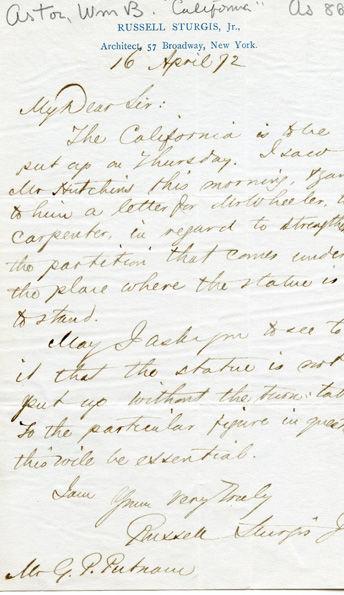 Astor, Wm B. "California" As 88
RUSSELL STURGIS, Jr.,
Architect, 57 Broadway, New York.
16 April 72
My Dear Sir:
The California is to be
put up on Thursday. I saw
Mr Hutchins this morning, & gav
to him a letter for Mr Wheeler,
carpenter, in regard to strength
the partition that comes under
the place where the statue is
to stand.
May I ask you to see to
it that the statue is not
put up without the turn-tab
To the particular figure in ques
this will be essential.
I am Yours very truly
Russell Sturgis J
Mr G. P. Putnam